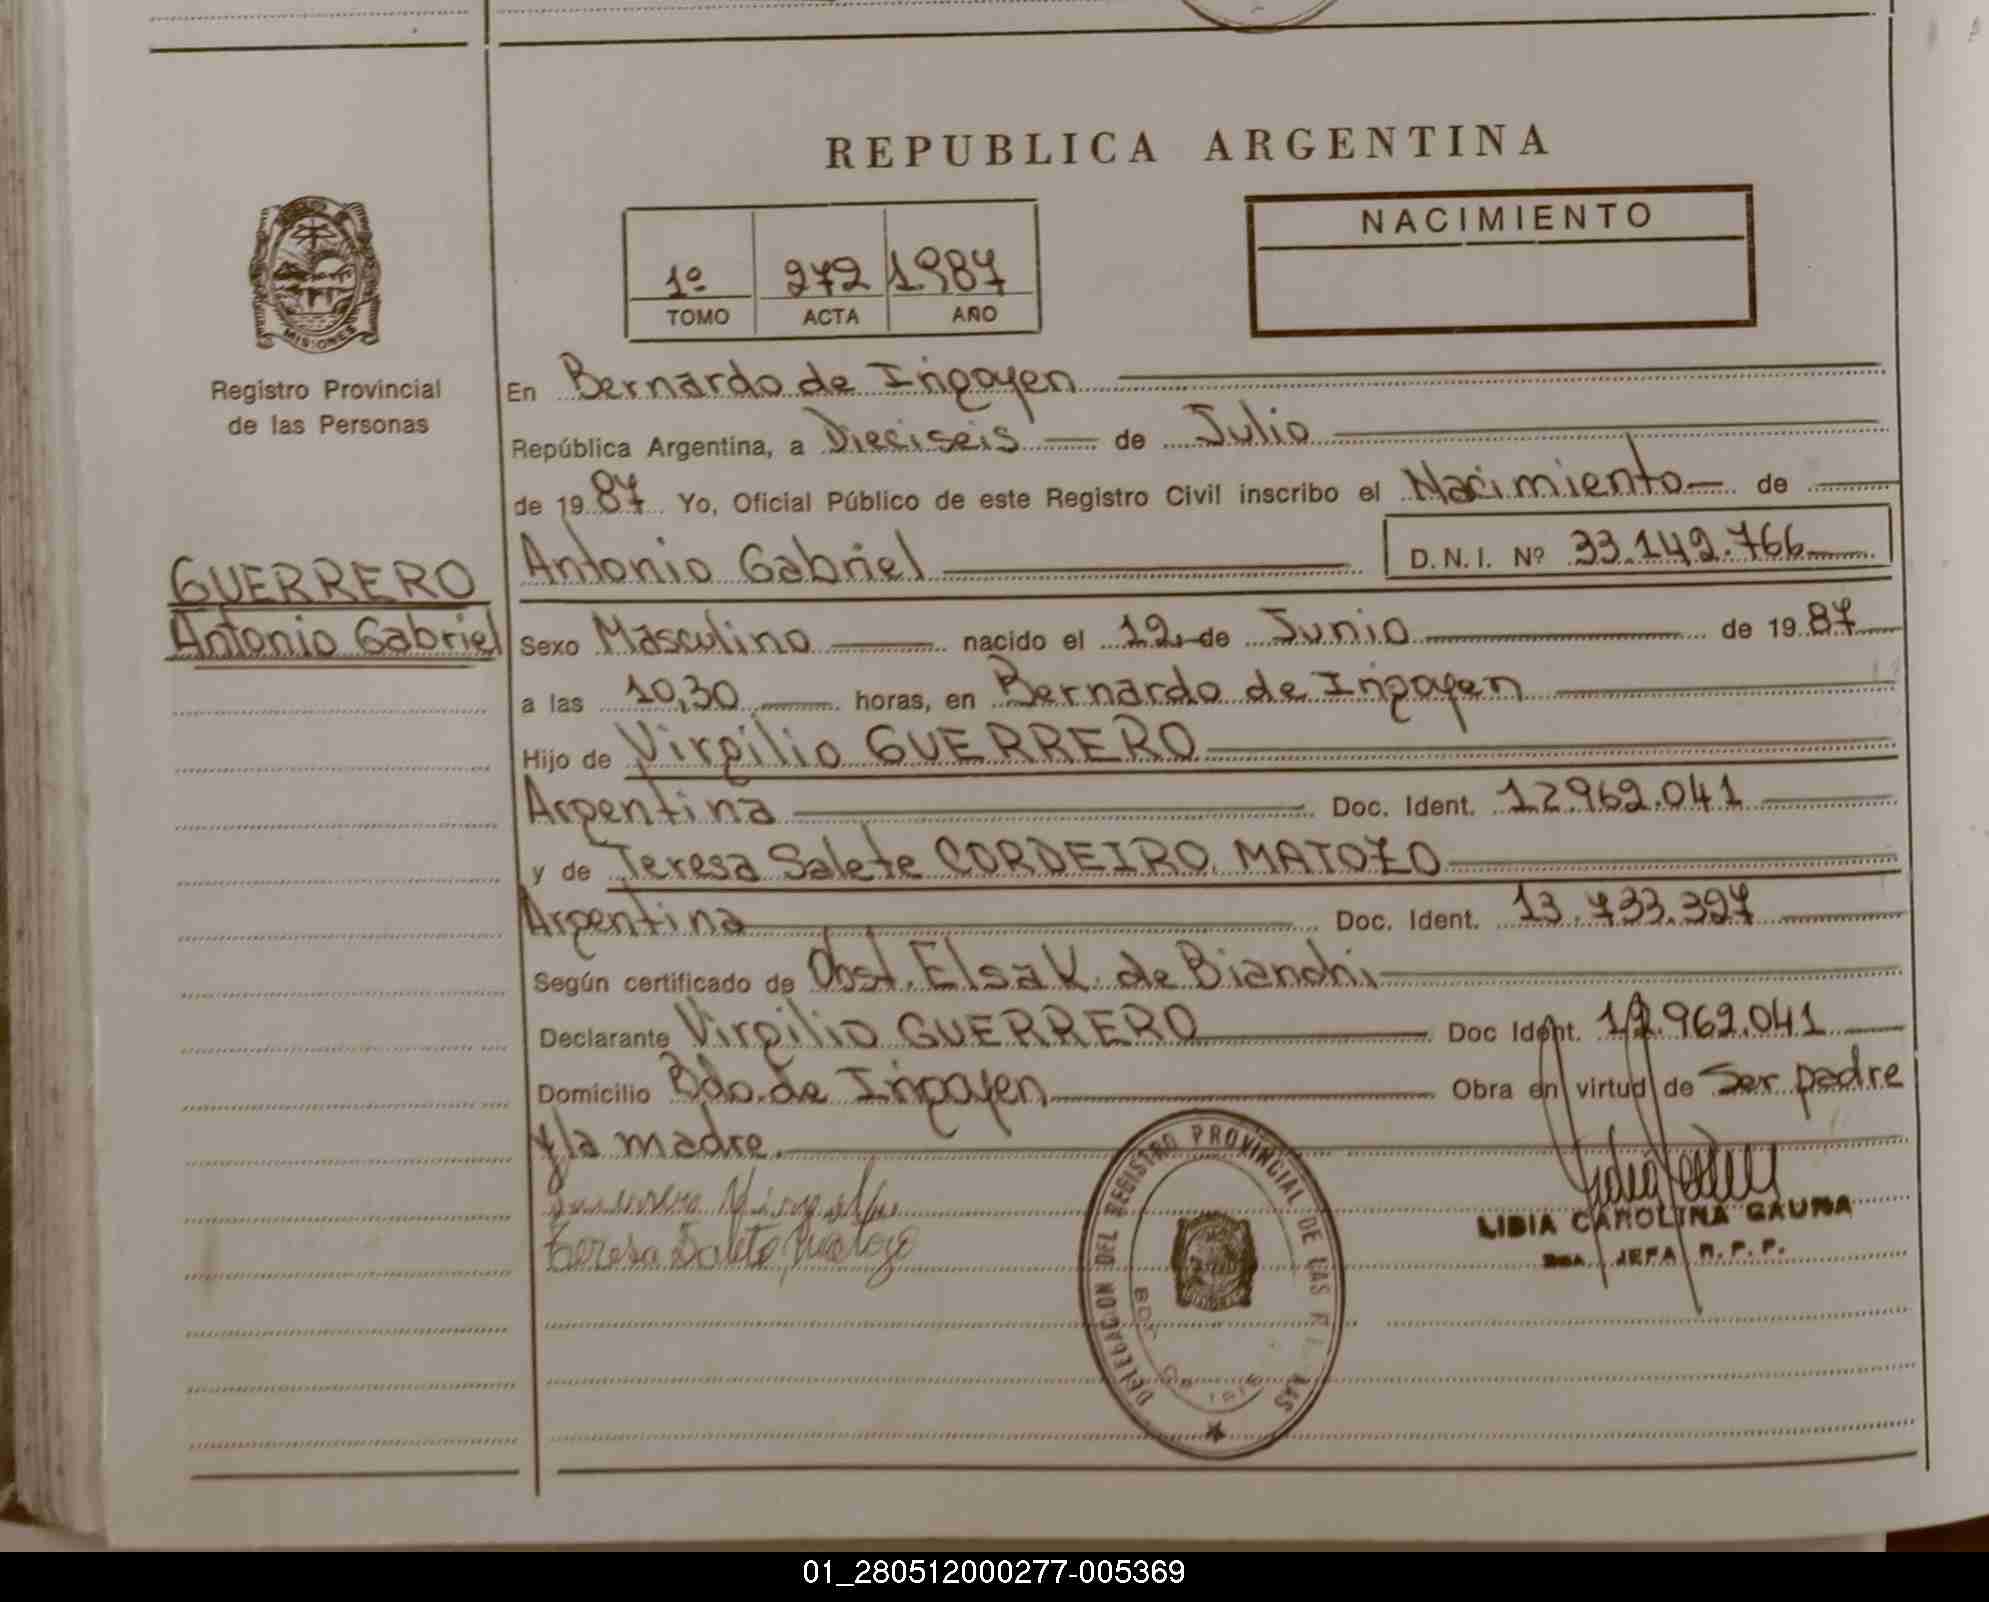 REPUBLICA ARGENTINA
NACIMIENTO
1º 272 1987
TOMO ACTA AÑO
MISIONES
Registro Provincial
de las Personas
En Bernardo de Irigoyen
República Argentina, a Dieciseis de Julio
de 1987 Yo, Oficial Público de este Registro Civil inscribo el Nacimiento de
GUERRERO
Antonio Gabriel
Antonio Gabriel D.N.I. Nº 33.142.766
Sexo Masculino nacido el 12 de Junio de 1987
a las 10,30 horas, en Bernardo de Irigoyen
Hijo de Virgilio GUERRERO
Argentina Doc. Ident. 12.962.041
y de Teresa Salete CORDEIRO MATOZO
Argentina Doc. Ident. 13.733.397
Según certificado de Obst. Elsa K. de Bianchi
Declarante Virgilio GUERRERO Doc Ident. 12.962.041
Domicilio Bdo. de Irigoyen Obra en virtud de Ser padre
y la madre.
Teresa Salete
DELEGACION DEL REGISTRO PROVINCIAL DE LAS
LIDIA CAROLINA GAUNA
JEFA R.P.P.
01_280512000277-005369